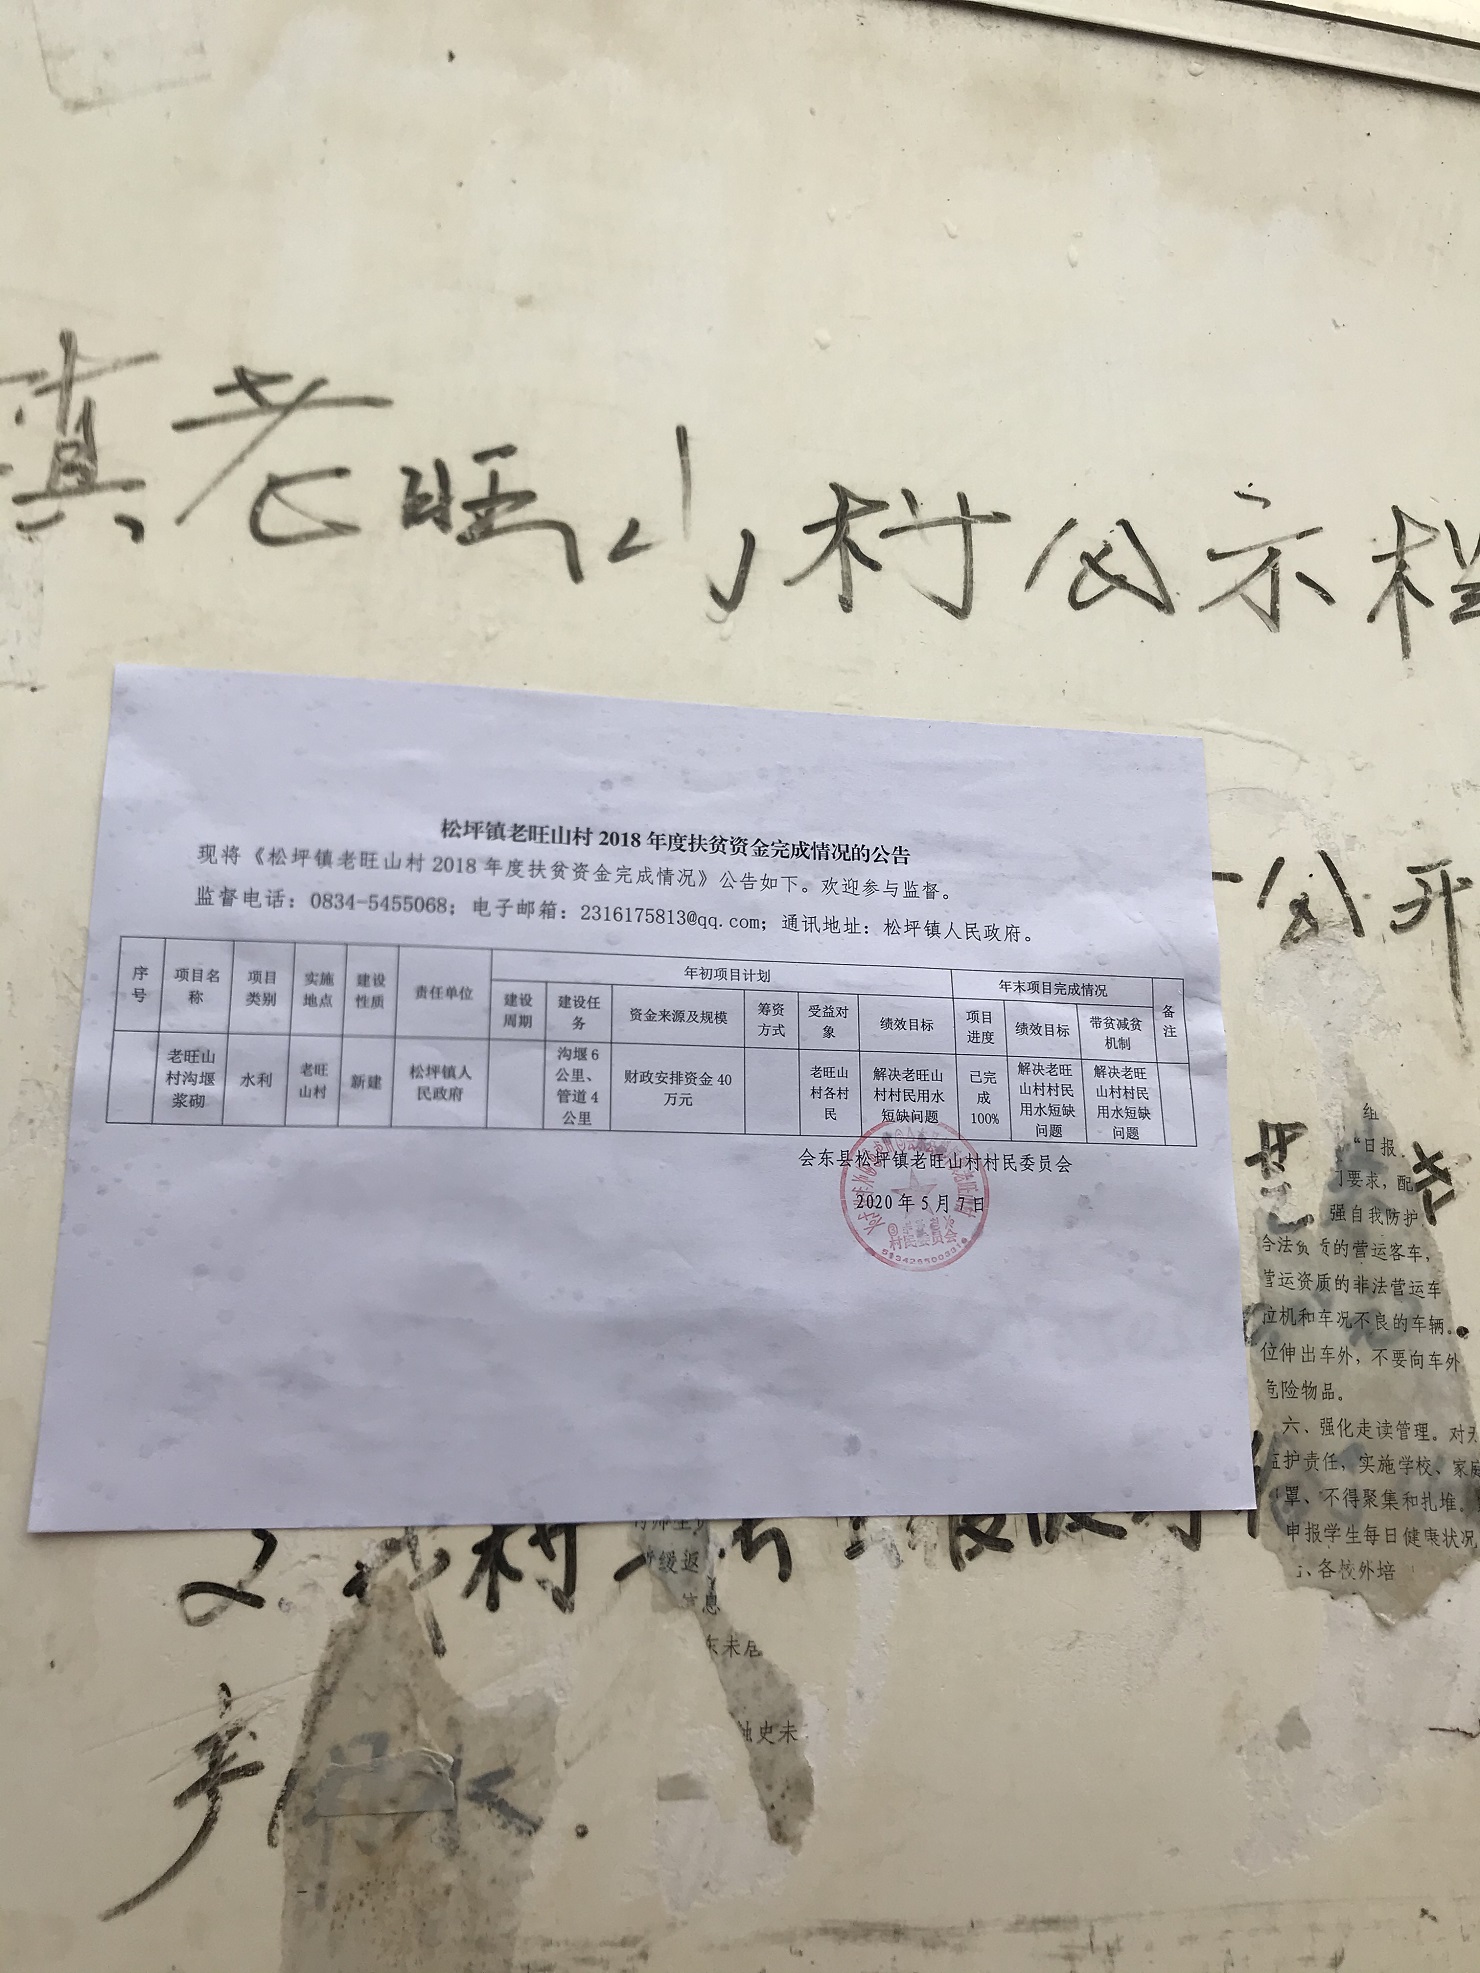 镇老旺山村公示栏
松坪镇老旺山村 2018 年度扶贫资金完成情况的公告
现将《松坪镇老旺山村 2018 年度扶贫资金完成情况》公告如下。欢迎参与监督。
监督电话：0834-5455068；电子邮箱：2316175813@qq.com；通讯地址：松坪镇人民政府。
序号 项目名称 项目类别 实施地点 建设性质 责任单位 年初项目计划 年末项目完成情况 备注
建设周期 建设任务 资金来源及规模 筹资方式 受益对象 绩效目标 项目进度 绩效目标 带贫减贫机制
老旺山村沟堰浆砌 水利 老旺山村 新建 松坪镇人民政府 沟堰 6 公里、管道 4 公里 财政安排资金 40 万元 老旺山村各村民 解决老旺山村村民用水短缺问题 已完成 100% 解决老旺山村村民用水短缺问题 解决老旺山村村民用水短缺问题
会东县松坪镇老旺山村村民委员会
2020 年 5 月 7 日
村民委员会
公开
组
“日报
门要求，配
强自我防护
合法 质的营运客车，
营运资质的非法营运车
位机和车况不良的车辆。
位伸出车外，不要向车外
危险物品。
六、强化走读管理。对
监护责任，实施学校、家庭
罩、不得聚集和扎堆。
申报学生每日健康状况
、各校外培
2.
村
缓返
信息
东未
史未